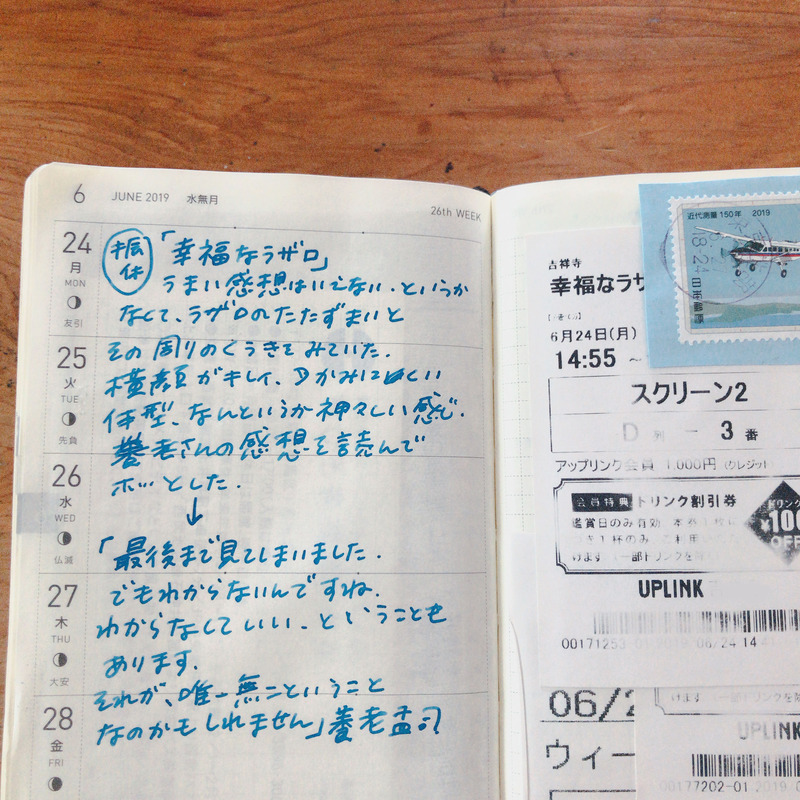 6 JUNE 2019 水無月
26th WEEK
24
月
MON
友引
25
火
TUE
先負
26
水
WED
仏滅
27
木
THU
大安
28
金
FRI
振休
「幸福なラザロ」
うまい感想はいえない.というか
なくて、ラザロのたたずまいと
その周りのくうきをみていた.
横顔がキレイ、
体型、なんというか神々しい感じ.
養老さんの感想を読んで
ホッとした.
↓
「最後まで見てしまいました.
でもわからないんですね.
わからなくていい、ということも
あります.
それが、唯一無二ということ
なのかもしれません」養老孟司
近代測量150年 2019
日本郵便
吉祥寺
幸福なラザ
6月24日(月)
14:55 ~
スクリーン2
D 列 ー 3 番
アップリンク会員 1,000円 (クレジット)
会員特典 ドリンク割引券
¥100
OFF
鑑賞日のみ有効
UPLINK
00171253 2019/06/24 14
06/2
ウィー
UPLINK
00177202-01 2019